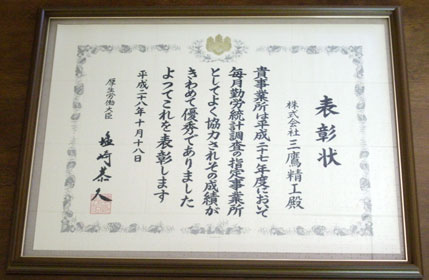 表彰状
株式会社三鷹精工殿
貴事業所は平成二十七年度において
毎月勤労統計調査の指定事業所
としてよく協力されその成績が
きわめて優秀でありました
よってこれを表彰します
平成二十八年十月十八日
厚生労働大臣
塩崎恭久